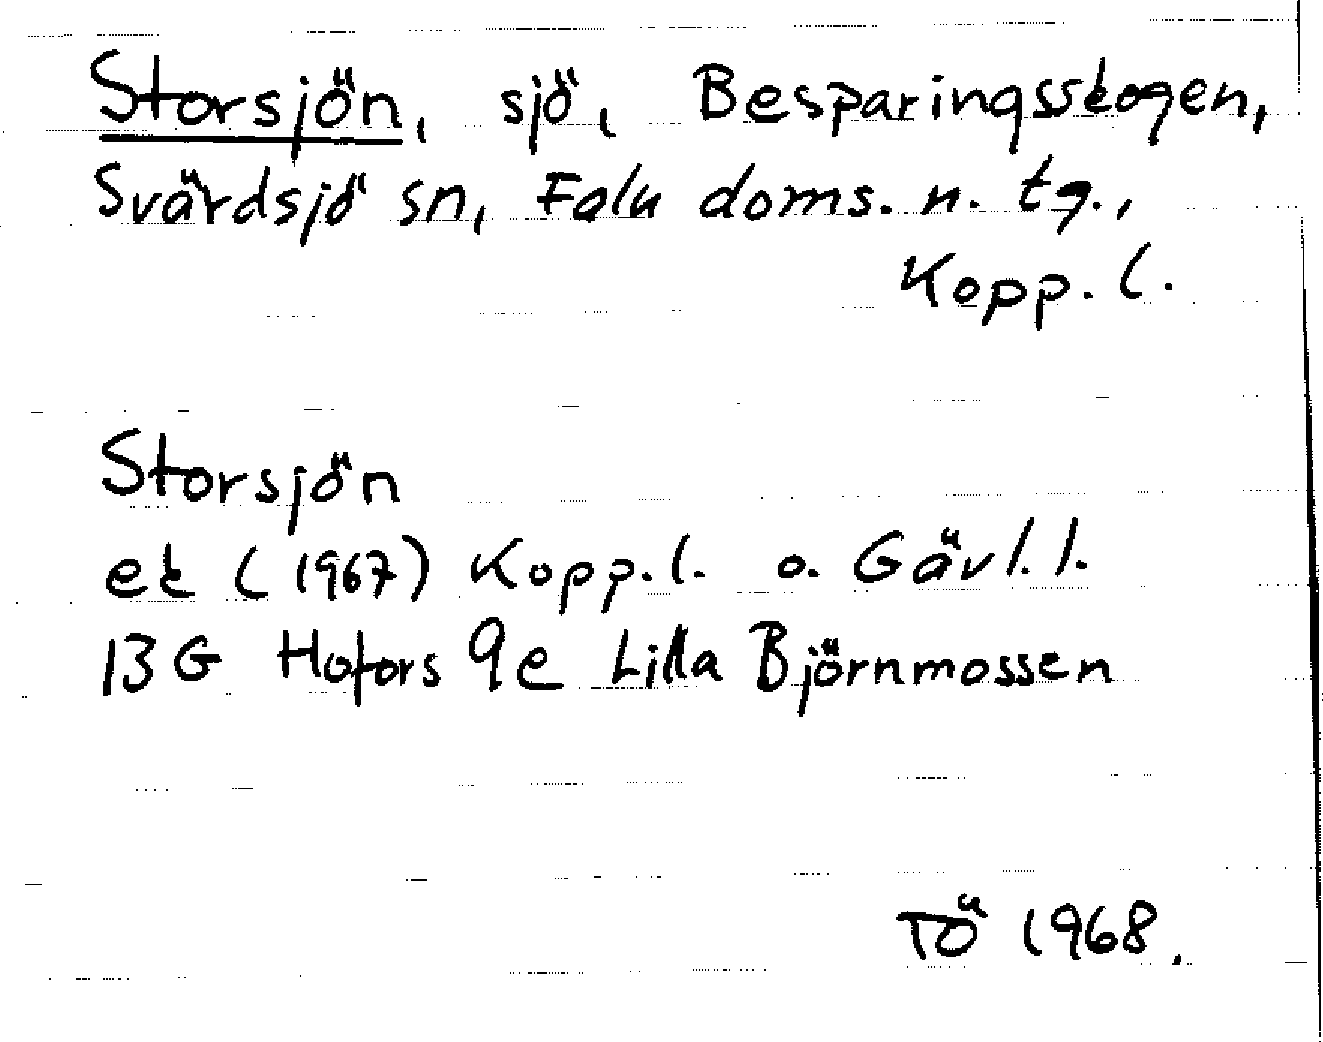 Storsjön, sjö, Besparingsskogen,
Svärdsjö sn, Falu doms. n. tg.,
Kopp. l.
Storsjön
ek (1967) Kopp. l. o. Gävl. l.
13 G Hofors 9e Lilla Björnmossen
TÖ 1968.